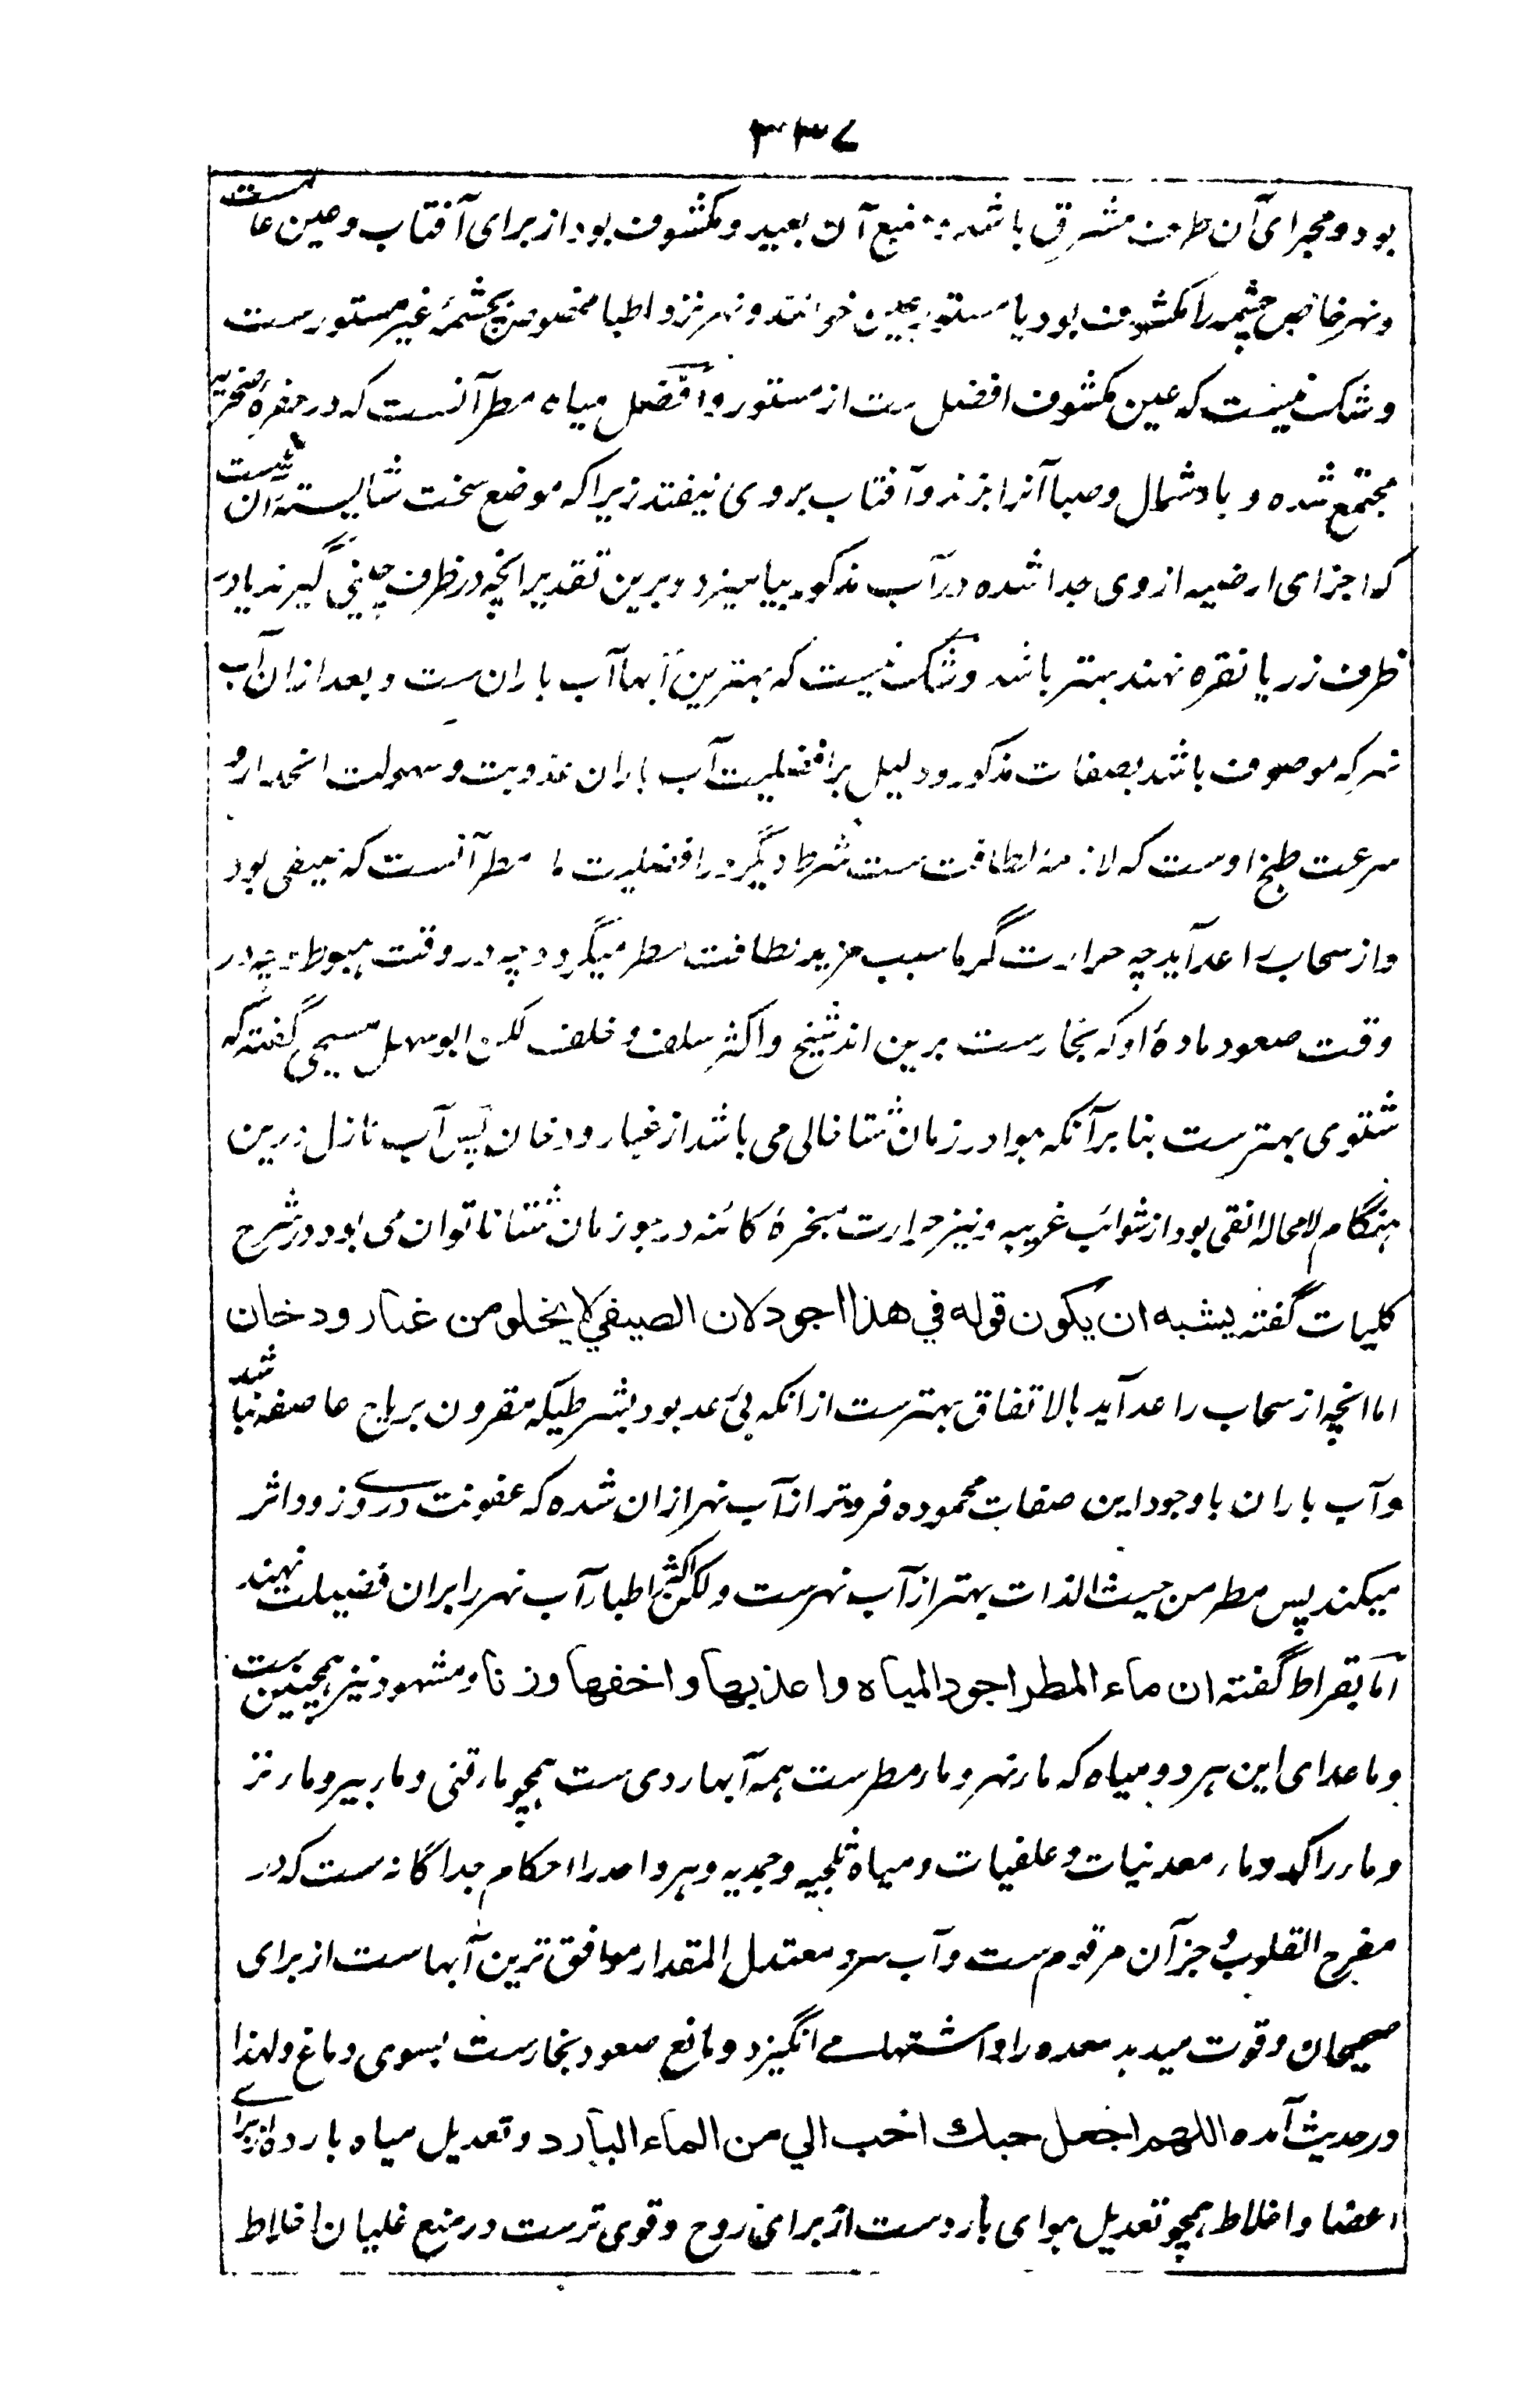 ۳۳۷
بود و مجرای آن طرف مشرق باشد و منبع آن بعید و مکشوف بود از برای آفتاب و عین عام ست
و نهر خاص چشمه را مکشوف بود یا مستور عین خوانند و نهر نزد اطبا مخصوص بچشمۂ غیر مستورست
و شک نیست که عین مکشوف افضل ست از مستور و افضل میاه مطر آنست که در حفرۂ صخریه
مجتمع شده و باد شمال و صبا آنرا بزند و آفتاب بروی نیفتد زیرا که موضع سخت شایسته آن نیست
که اجزای ارضیه از وی جدا شده در آب مذکور بیامیزد و برین تقدیر انچه در ظرف چینی گیرند یا در
ظرف زر یا نقره نهند بهتر باشد و شک نیست که بهترین آبها آب باران ست و بعد ازان آب
نهر که موصوف باشد بصفات مذکور و دلیل بر افضلیت آب باران عذوبت و سهولت انحدار و
سرعت طبخ اوست که لازمه لطافت ست شرط دیگر در افضلیت ماء مطر آنست که صیفی بود
و از سحاب راعد آید چه حرارت گرما سبب مزید لطافت مطر میگردد چه در وقت هبوط و چه در
وقت صعود مادۂ او که بخارست برین اند شیخ و اکثر سلف و خلف لکن ابو سهل مسیحی گفته که
شتوی بهترست بنا بر آنکه هوا در زمان شتا خالی می باشد از غبار و دخان پس آب نازل درین
هنگام لامحاله انقی بود از شوائب غریبه و نیز حرارت مبخرۂ کائنه در جو زمان شتا ناتوان می بود و در شرح
کلیات گفته یشبه ان یکون قوله في هذا اجود لان الصیفي لا یخلو من غبار ودخان
اما انچه از سحاب راعد آید بالاتفاق بهترست از انکه بی رعد بود بشرطیکه مقرون بریاح عاصفه نباشد
و آب باران با وجود این صفات محموده فروتر از آب نهر ازان شده که عفونت در وی زود اثر
میکند پس مطر من حیث الذات بهتر از آب نهرست ولکن اکثر اطبا آب نهر را بران فضیلت نهند
اما بقراط گفته ان ماء المطر اجود المیاه واعذبها واخفها وزنا و مشهود نیز همچنین ست
و ماعدای این هر دو میاه که ماء نهر و ماء مطرست همه آبها ردی ست همچو ماء قنی و ماء بیر و ماء نز
و ماء راکد و ماء معدنیات و علقیات و میاه ثلجیه و جمدیه و هر واحد را احکام جداگانه ست که در
مفرح القلوب و جز آن مرقوم ست و آب سرد معتدل المقدار موافق ترین آبهاست از برای
صحیحان و قوت میدهد معده را و اشتها می انگیزد و مانع صعود بخارست بسوی دماغ ولهذا
در حدیث آمده اللهم اجعل حبك احب الي من الماء البارد و تعدیل میاه بارده از برای
اعضا و اخلاط همچو تعدیل هوای باردست از برای روح و قوی ترست در منع غلیان اخلاط